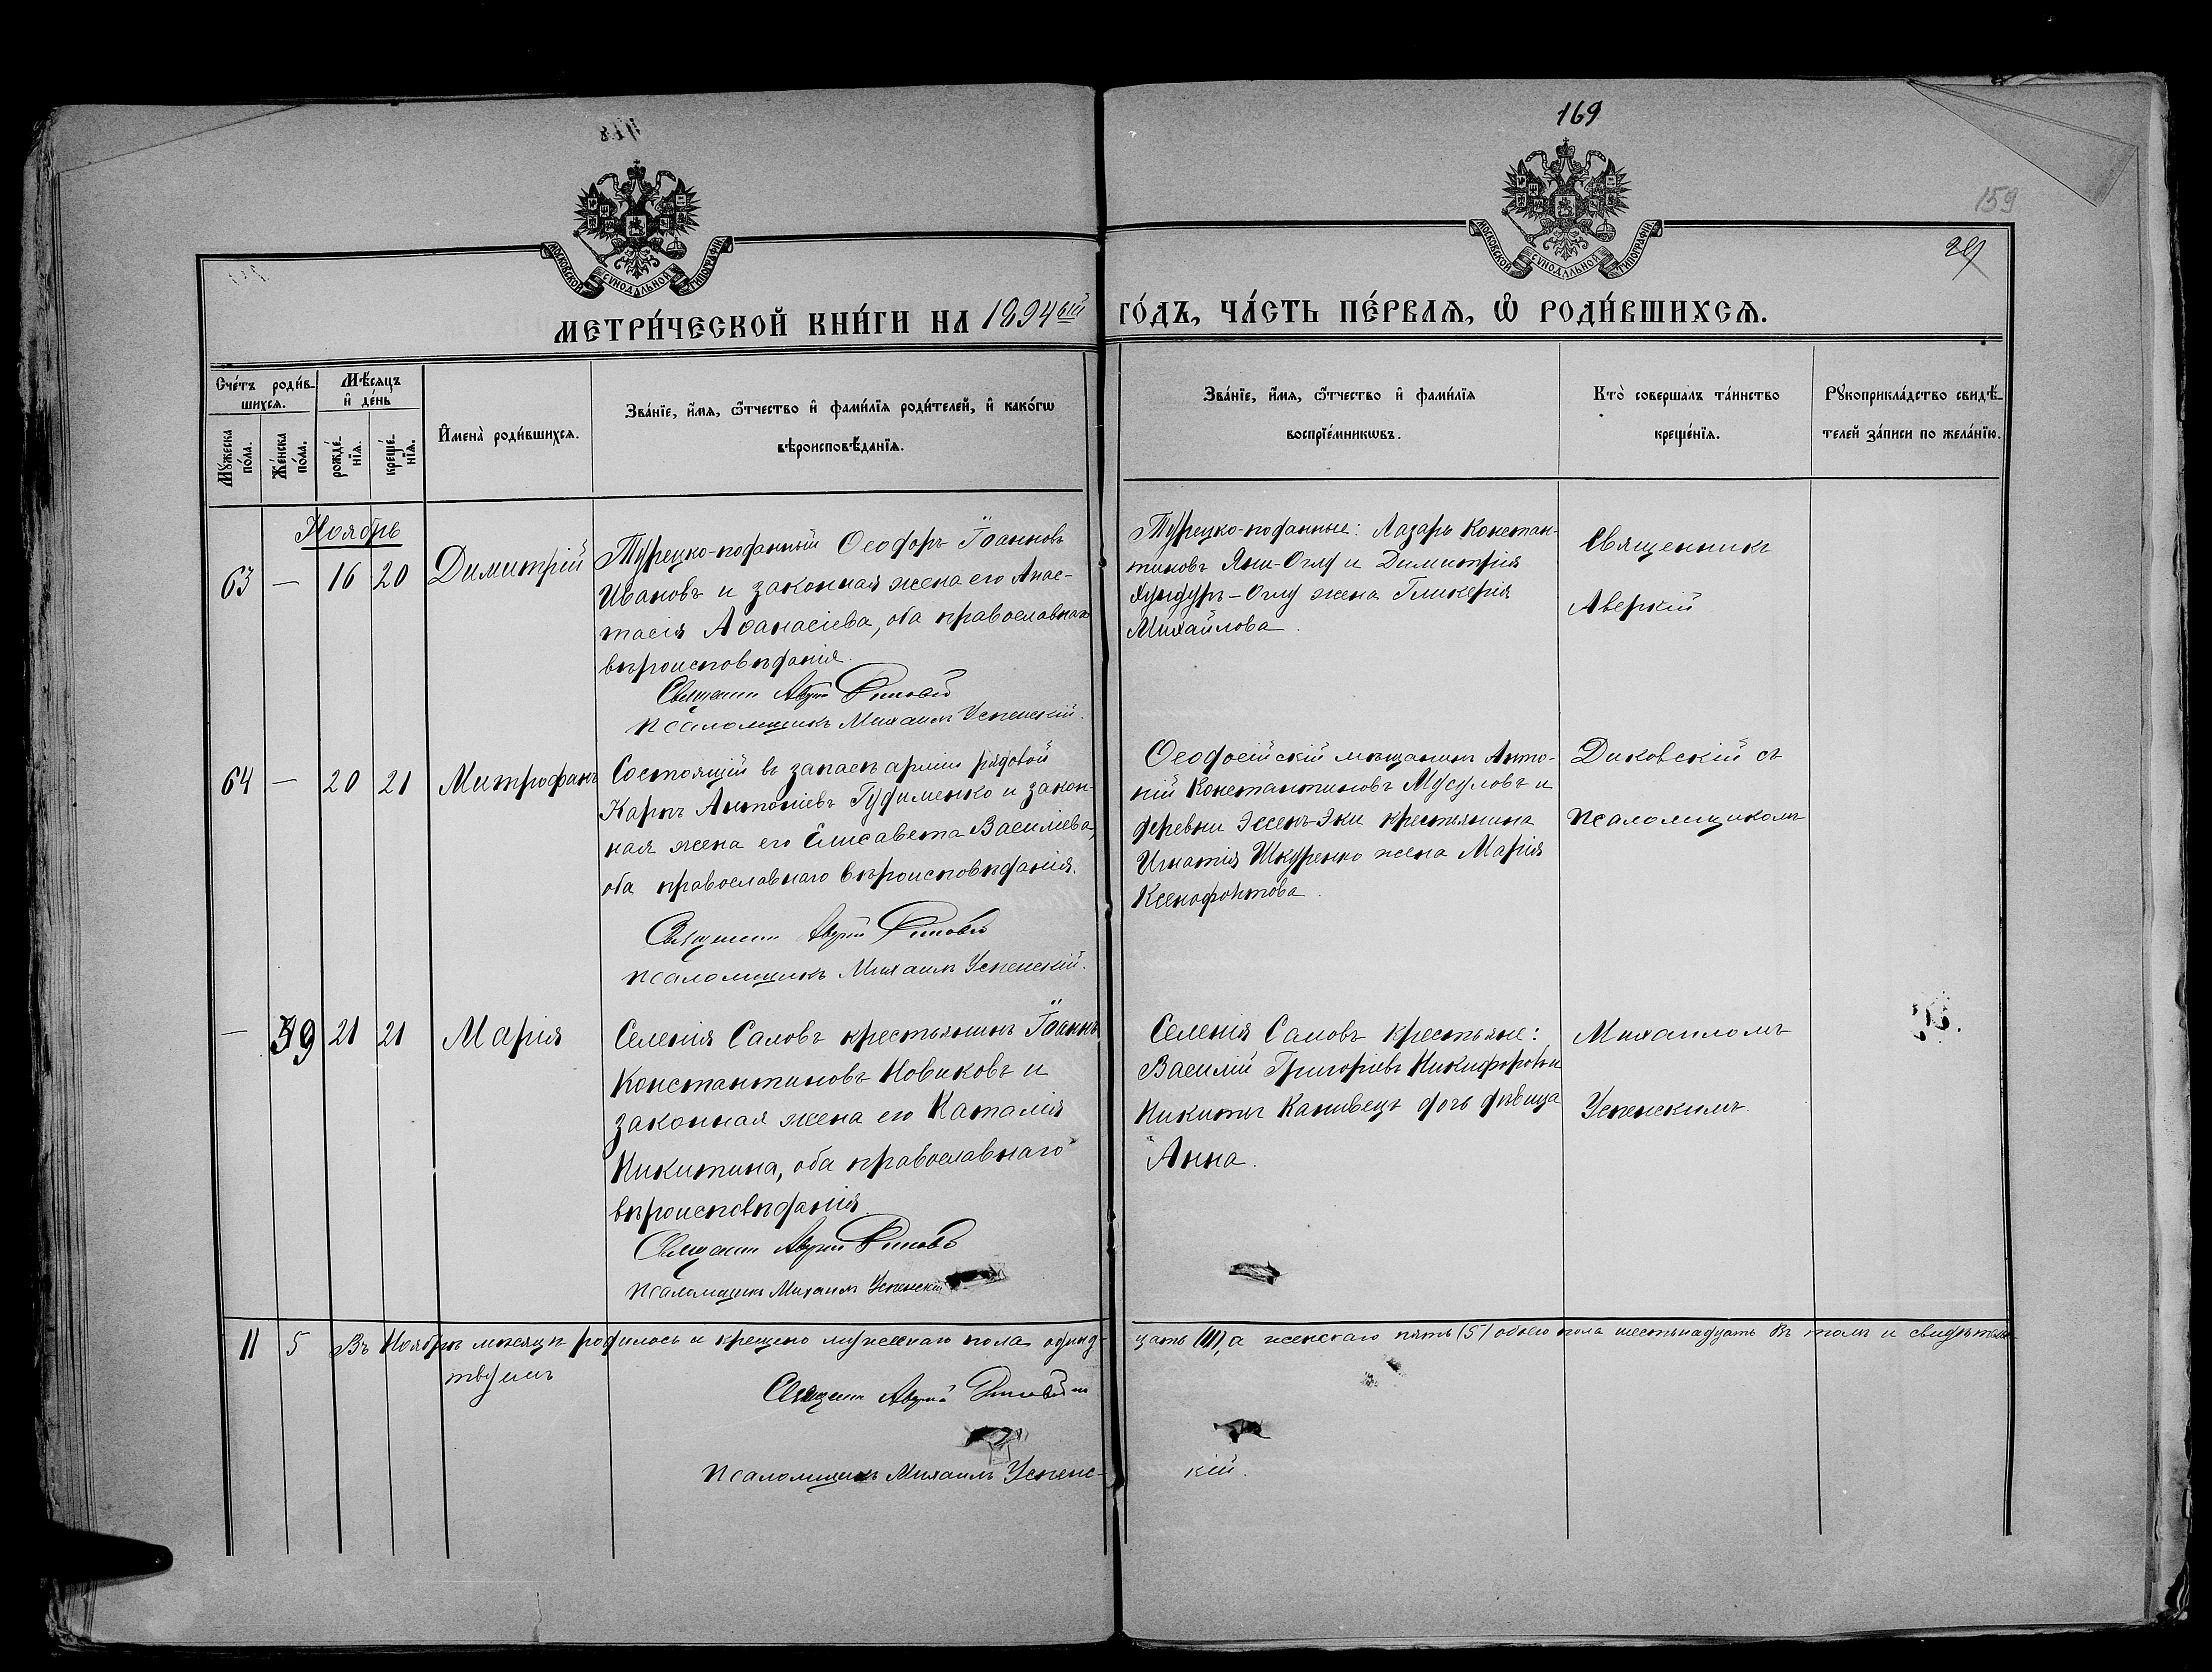 169
159
МОСКОВСКОЙ СѴНОДАЛЬНОЙ ТИПОГРАФІИ
МОСКОВСКОЙ СѴНОДАЛЬНОЙ ТИПОГРАФІИ
МЕТРИ́ЧЕСКОЙ КНИ́ГИ НА 1894ый ГО́ДЪ, ЧА́СТЬ ПЕ́РВАѦ, Ѽ РОДИ́ВШИХСѦ.
Сче́тъ роди́в-
шихсѧ.
Мꙋ́жеска по́ла.
Же́нска по́ла.
Мѣ́сѧцъ
и҆ де́нь
рожде́-
нїѧ.
креще́-
нїѧ.
И҆мена̀ роди́вшихсѧ.
Зва́нїе, и҆́мѧ, ѻ҆́тчество и҆ фами́лїѧ роди́телей, и҆ како́гѡ
вѣроисповѣ́данїѧ.
Зва́нїе, и҆́мѧ, ѻ҆́тчество и҆ фами́лїѧ
воспрїе́мникѡвъ.
Кто̀ соверша́лъ та́инство
креще́нїѧ.
Рꙋкоприкла́дство свидѣ́-
телей за́писи по жела́нїю.
Ноябрь
63 — 16 20 Димитрій
Турецко-подданный Ѳеодоръ Іоанновъ
Ивановъ и законная жена его Анас-
тасія Аѳанасіева, оба православнаго
вѣроисповѣданія.
Священникъ Аверкій Диковскій
Псаломщикъ Михаилъ Успенскій.
Турецко-подданные: Лазарь Констан-
тиновъ Яни-Оглу и Димитрія
Хундуръ-Оглу жена Гликерія
Михайлова.
Священникъ
Аверкій
64 — 20 21 Митрофанъ
Состоящій въ запасѣ арміи рядовой
Карпъ Антоніевъ Гудименко и закон-
ная жена его Елисавета Василіева,
оба православнаго вѣроисповѣданія.
Священникъ Аверкій Диковскій
Псаломщикъ Михаилъ Успенскій.
Ѳеодосійскій мѣщанинъ Анто-
ній Константиновъ Мусуловъ и
деревни Эссенъ-Эки крестьянина
Игнатія Шкуренко жена Марія
Ксенофонтова.
Диковскій съ
псаломщикомъ
— 39 21 21 Марія
Селенія Саловъ крестьянинъ Іоаннъ
Константиновъ Новиковъ и
законная жена его Наталія
Никитина, оба православнаго
вѣроисповѣданія.
Священникъ Аверкій Диковскій
Псаломщикъ Михаилъ Успенскій
Селенія Саловъ крестьяне:
Василій Григоріевъ Никифоровъ и
Никиты Канивецъ дочь дѣвица
Анна.
Михаиломъ
Успенскимъ.
11 5 Въ Ноябрѣ мѣсяцѣ родилось и крещено мужескаго пола одинад-
цать (11), а женскаго пять (5) обоего пола шестьнадцать въ томъ и свидѣтель-
твуемъ
Священникъ Аверкій Диковскій
Псаломщикъ Михаилъ Успенс-
кій.